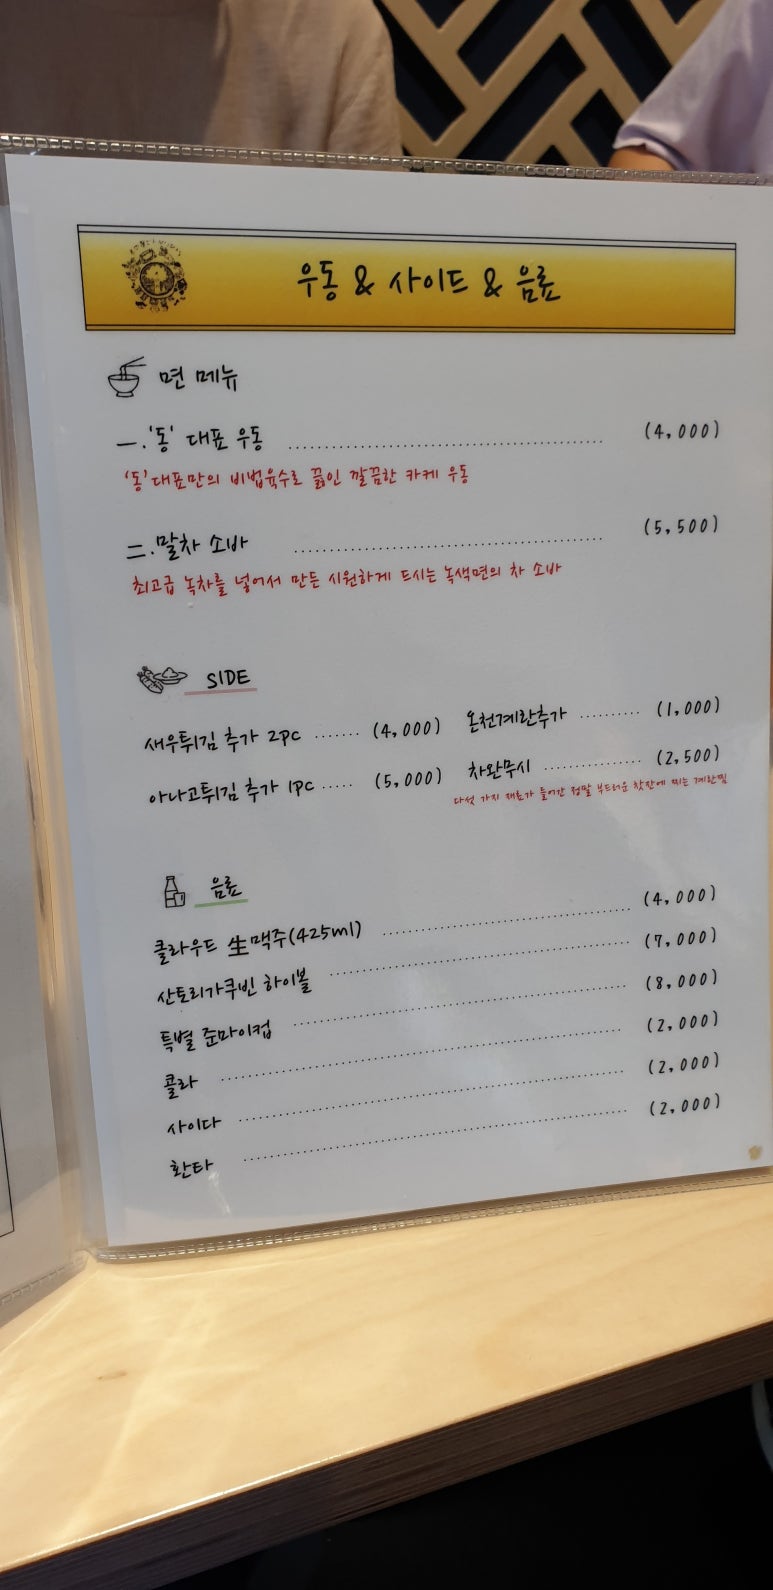 우동 & 사이드 & 음료
면 메뉴
一.'동' 대표 우동 (4,000)
'동'대표만의 비법육수로 끓인 깔끔한 카케 우동
二.말차 소바 (5,500)
최고급 녹차를 넣어서 만든 시원하게 드시는 녹색면의 차 소바
SIDE
새우튀김 추가 2pc ....... (4,000)
아나고튀김 추가 1pc ..... (5,000)
온천계란추가 .......... (1,000)
차완무시 ................ (2,500)
다섯 가지 재료가 들어간 정말 부드러운 찻잔에 찌는 계란찜
음료
클라우드 生맥주(425ml) (4,000)
산토리가쿠빈 하이볼 (7,000)
특별 준마이컵 (8,000)
콜라 (2,000)
사이다 (2,000)
환타 (2,000)